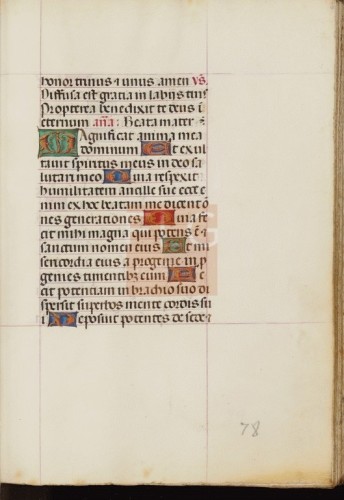 honor trinus ⁊ unus amen vs̃.
Diffusa est gracia in labijs tuis
Propterea benedixit te deus ĩ
eternum añа: Beata mater ⁊
Magnificat anima mea
dominum Et exul
tauit spiritus meus in deo sa
lutari meo Quia respexit
humilitatem ancille sue ecce e
nim ex hoc beatam me dicent ō
nes generationes Quia fe
cit mihi magna qui potens ē ⁊
sanctum nomen eius Et mi
sericordia eius a progenie in p
genies timentibus eum Fe
cit potenciam in brachio suo di
spersit superbos mente cordis su
i Deposuit potentes de sede ⁊
78